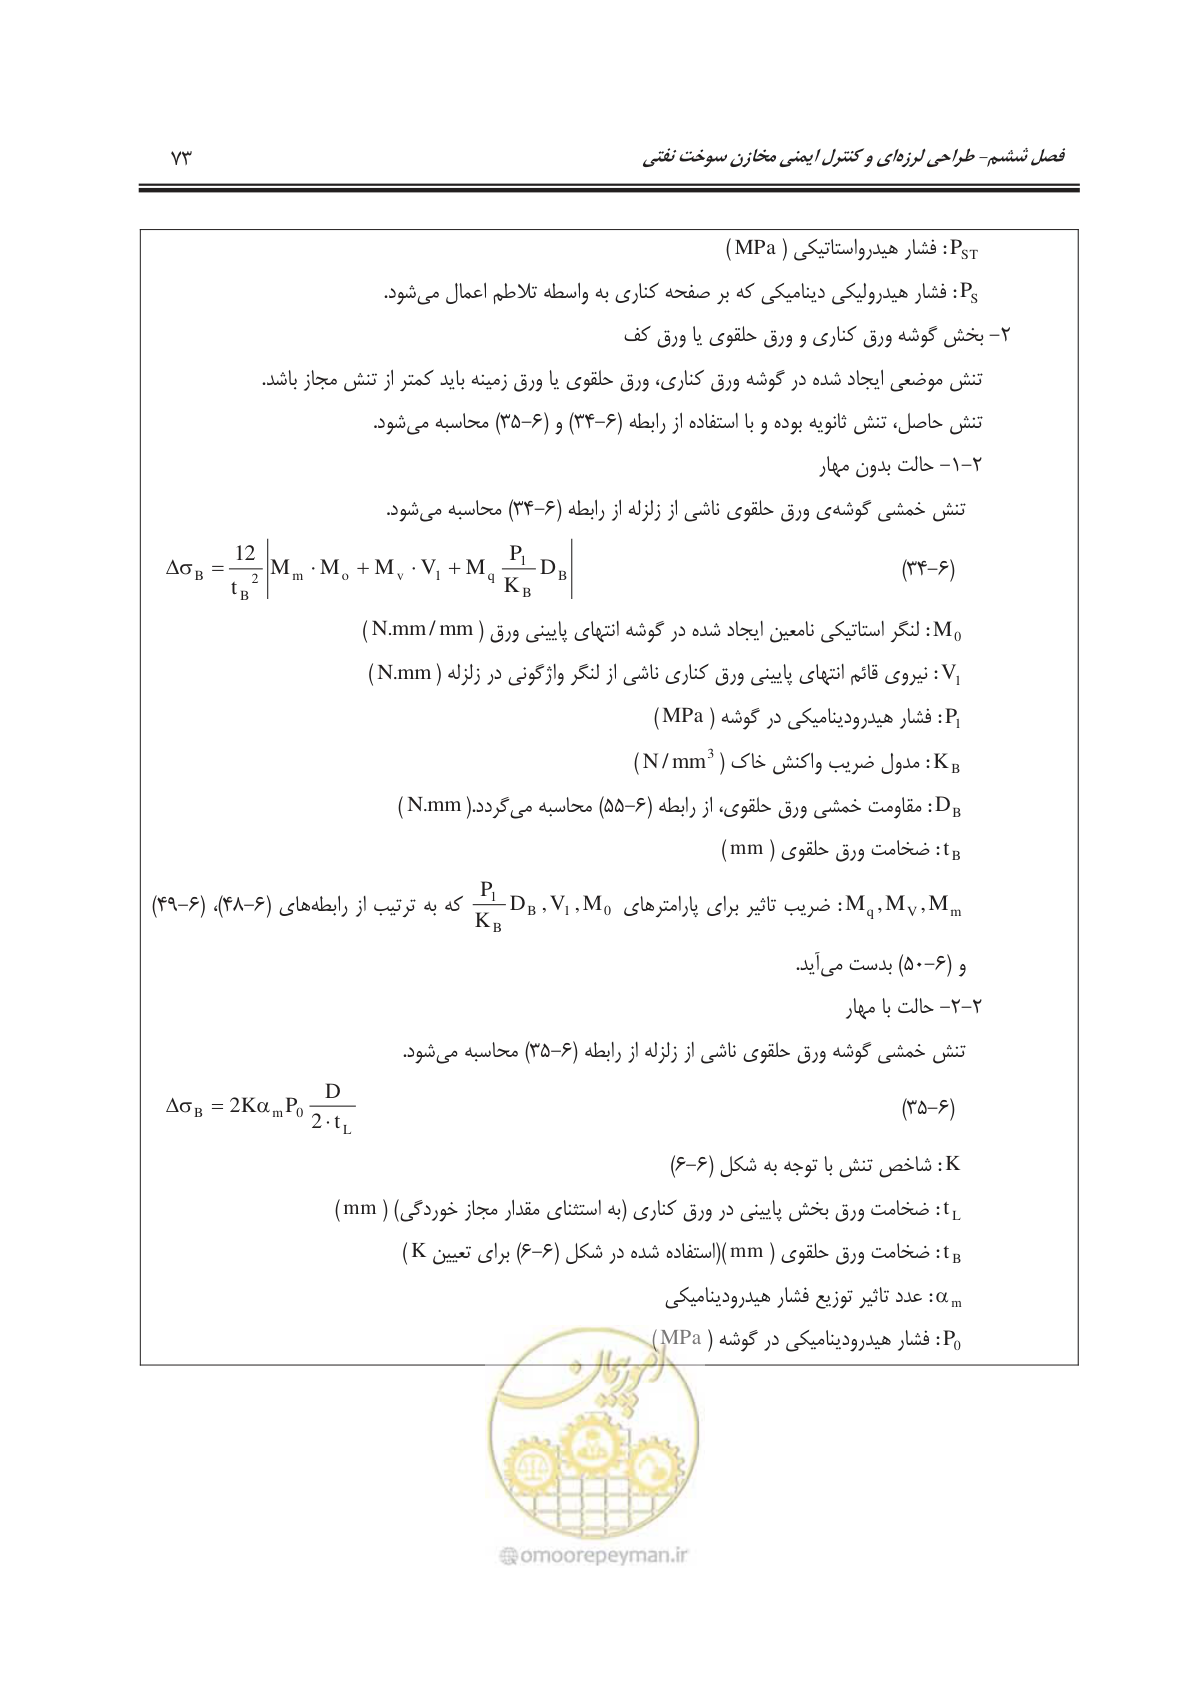 فصل ششم- طراحی لرزه‌ای و کنترل ایمنی مخازن سوخت نفتی ۷۳
P_ST: فشار هیدرواستاتیکی (MPa)
P_S: فشار هیدرولیکی دینامیکی که بر صفحه کناری به واسطه تلاطم اعمال می‌شود.
۲- بخش گوشه ورق کناری و ورق حلقوی یا ورق کف
تنش موضعی ایجاد شده در گوشه ورق کناری، ورق حلقوی یا ورق زمینه باید کمتر از تنش مجاز باشد.
تنش حاصل، تنش ثانویه بوده و با استفاده از رابطه (۶-۳۴) و (۶-۳۵) محاسبه می‌شود.
۲-۱- حالت بدون مهار
تنش خمشی گوشه‌ی ورق حلقوی ناشی از زلزله از رابطه (۶-۳۴) محاسبه می‌شود.
(۶-۳۴) Δσ_B = 12/t_B^2 |M_m · M_o + M_v · V_1 + M_q P_1/K_B D_B|
M_0: لنگر استاتیکی نامعین ایجاد شده در گوشه انتهای پایینی ورق (N.mm/mm)
V_1: نیروی قائم انتهای پایینی ورق کناری ناشی از لنگر واژگونی در زلزله (N.mm)
P_1: فشار هیدرودینامیکی در گوشه (MPa)
K_B: مدول ضریب واکنش خاک (N/mm^3)
D_B: مقاومت خمشی ورق حلقوی، از رابطه (۶-۵۵) محاسبه می‌گردد.(N.mm)
t_B: ضخامت ورق حلقوی (mm)
M_q, M_V, M_m: ضریب تاثیر برای پارامترهای P_1/K_B D_B, V_1, M_0 که به ترتیب از رابطه‌های (۶-۴۸)، (۶-۴۹)
و (۶-۵۰) بدست می‌آید.
۲-۲- حالت با مهار
تنش خمشی گوشه ورق حلقوی ناشی از زلزله از رابطه (۶-۳۵) محاسبه می‌شود.
(۶-۳۵) Δσ_B = 2Kα_m P_0 D/(2·t_L)
K: شاخص تنش با توجه به شکل (۶-۶)
t_L: ضخامت ورق بخش پایینی در ورق کناری (به استثنای مقدار مجاز خوردگی) (mm)
t_B: ضخامت ورق حلقوی (mm)(استفاده شده در شکل (۶-۶) برای تعیین K)
α_m: عدد تاثیر توزیع فشار هیدرودینامیکی
P_0: فشار هیدرودینامیکی در گوشه (MPa)
امور پیمان
@omoorepeyman.ir